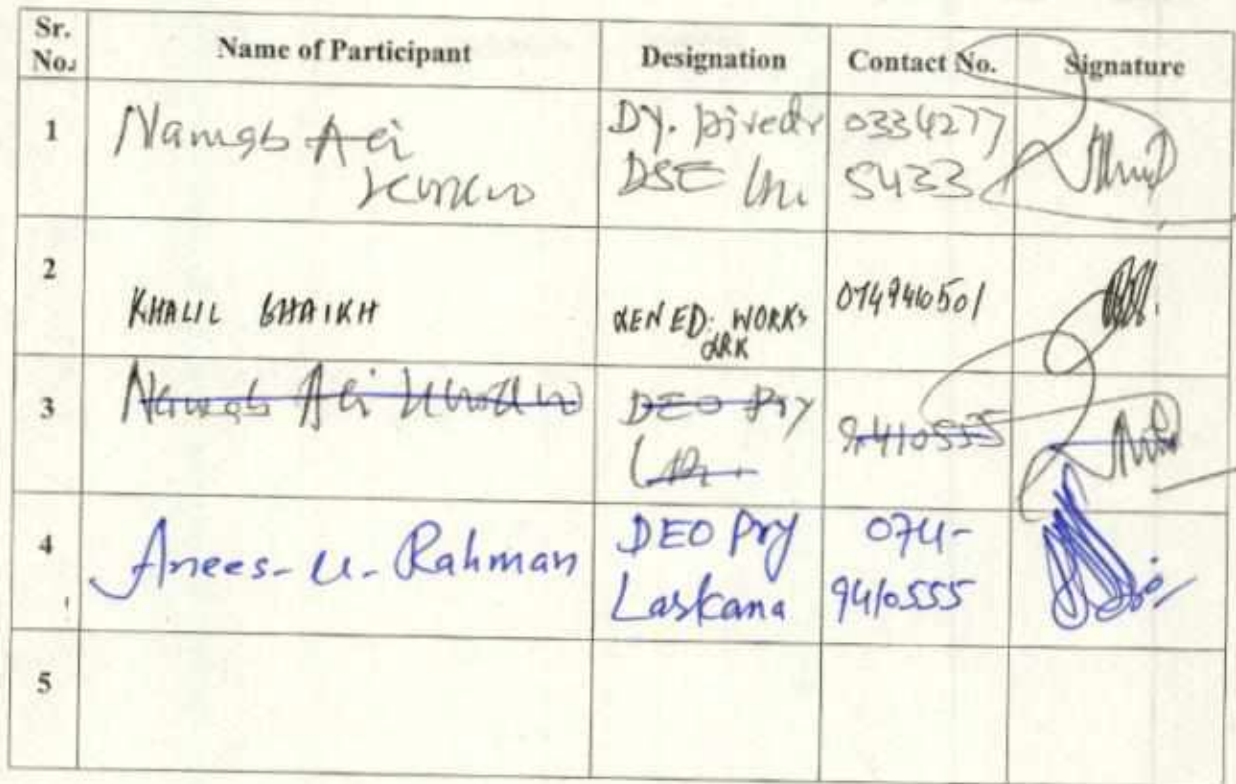 Sr. No. Name of Participant Designation Contact No. Signature
1 Nawab Ali Dy. Director 0334277
DSE 5433
2
KHALIL SHAIKH XEN ED: WORKS 0749410501
LRK
3 Nawab Ali DEO Pry 9410555
4 Anees-u-Rahman DEO Pry 074-
Laskana 9410555
5